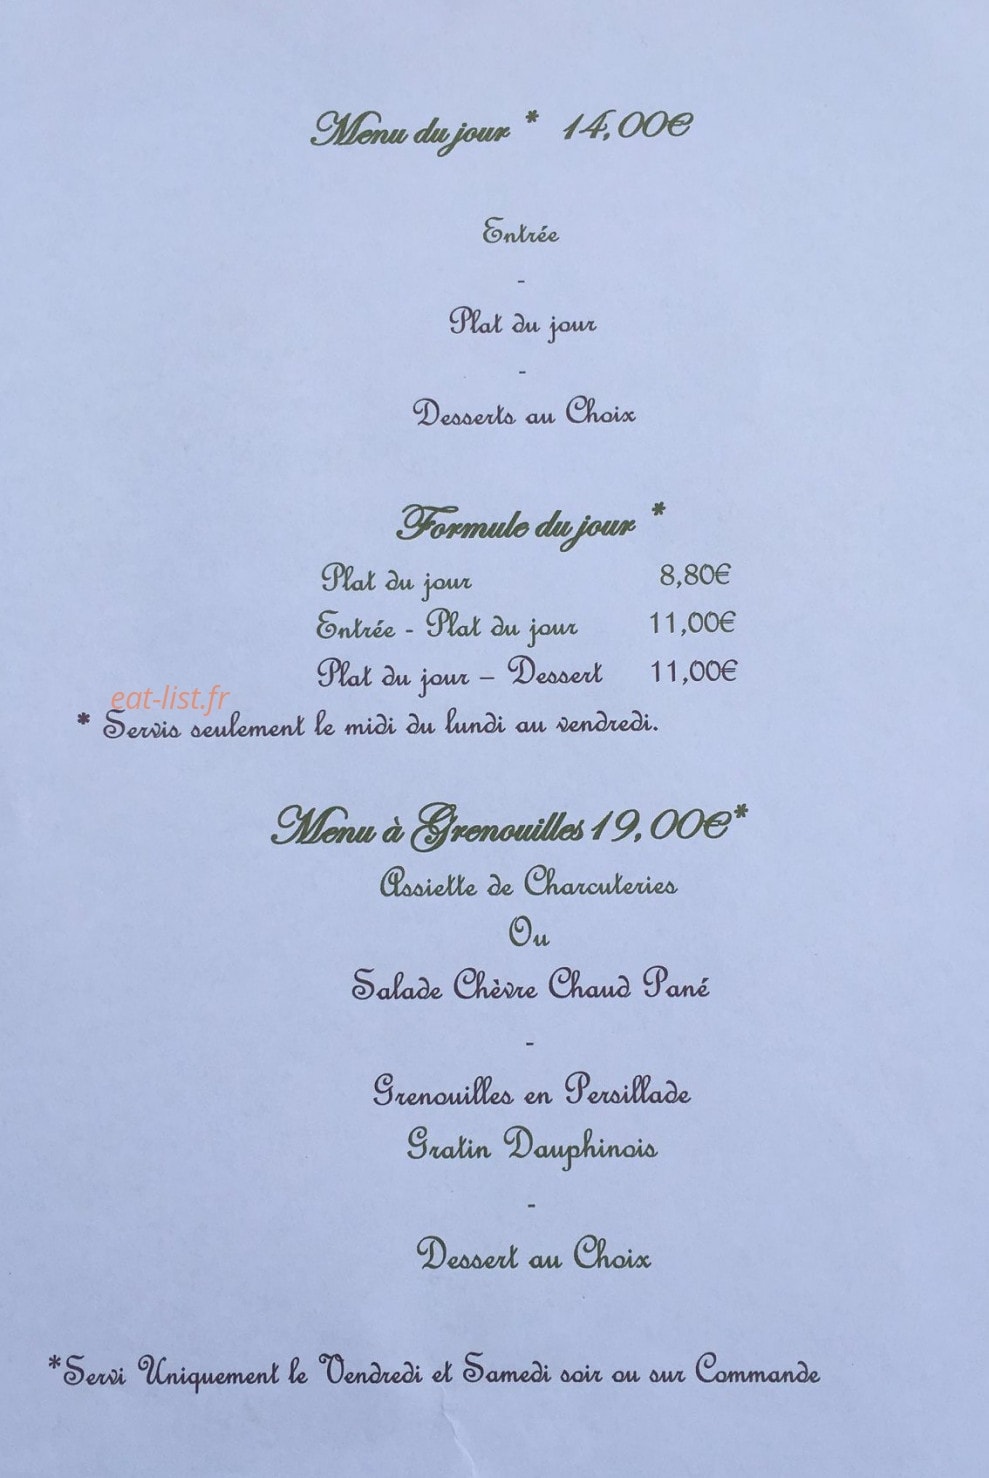 Menu du jour * 14,00€
Entrée
-
Plat du jour
-
Desserts au Choix
Formule du jour *
Plat du jour 8,80€
Entrée - Plat du jour 11,00€
Plat du jour – Dessert 11,00€
eat-list.fr
* Servis seulement le midi du lundi au vendredi.
Menu à Grenouilles 19,00€*
Assiette de Charcuteries
Ou
Salade Chèvre Chaud Pané
-
Grenouilles en Persillade
Gratin Dauphinois
-
Dessert au Choix
*Servi Uniquement le Vendredi et Samedi soir ou sur Commande